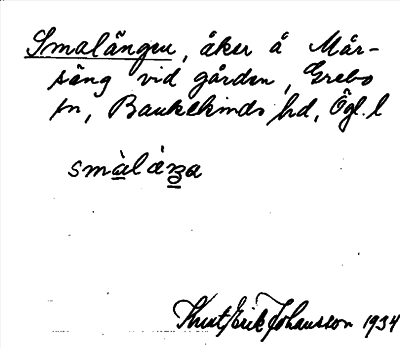 Smalängen, åker å Mår-
säng vid gården, Grebo
sn, Bankekinds hd, Ögl. l
smàlàŋa
Knut Erik Johansson 1934